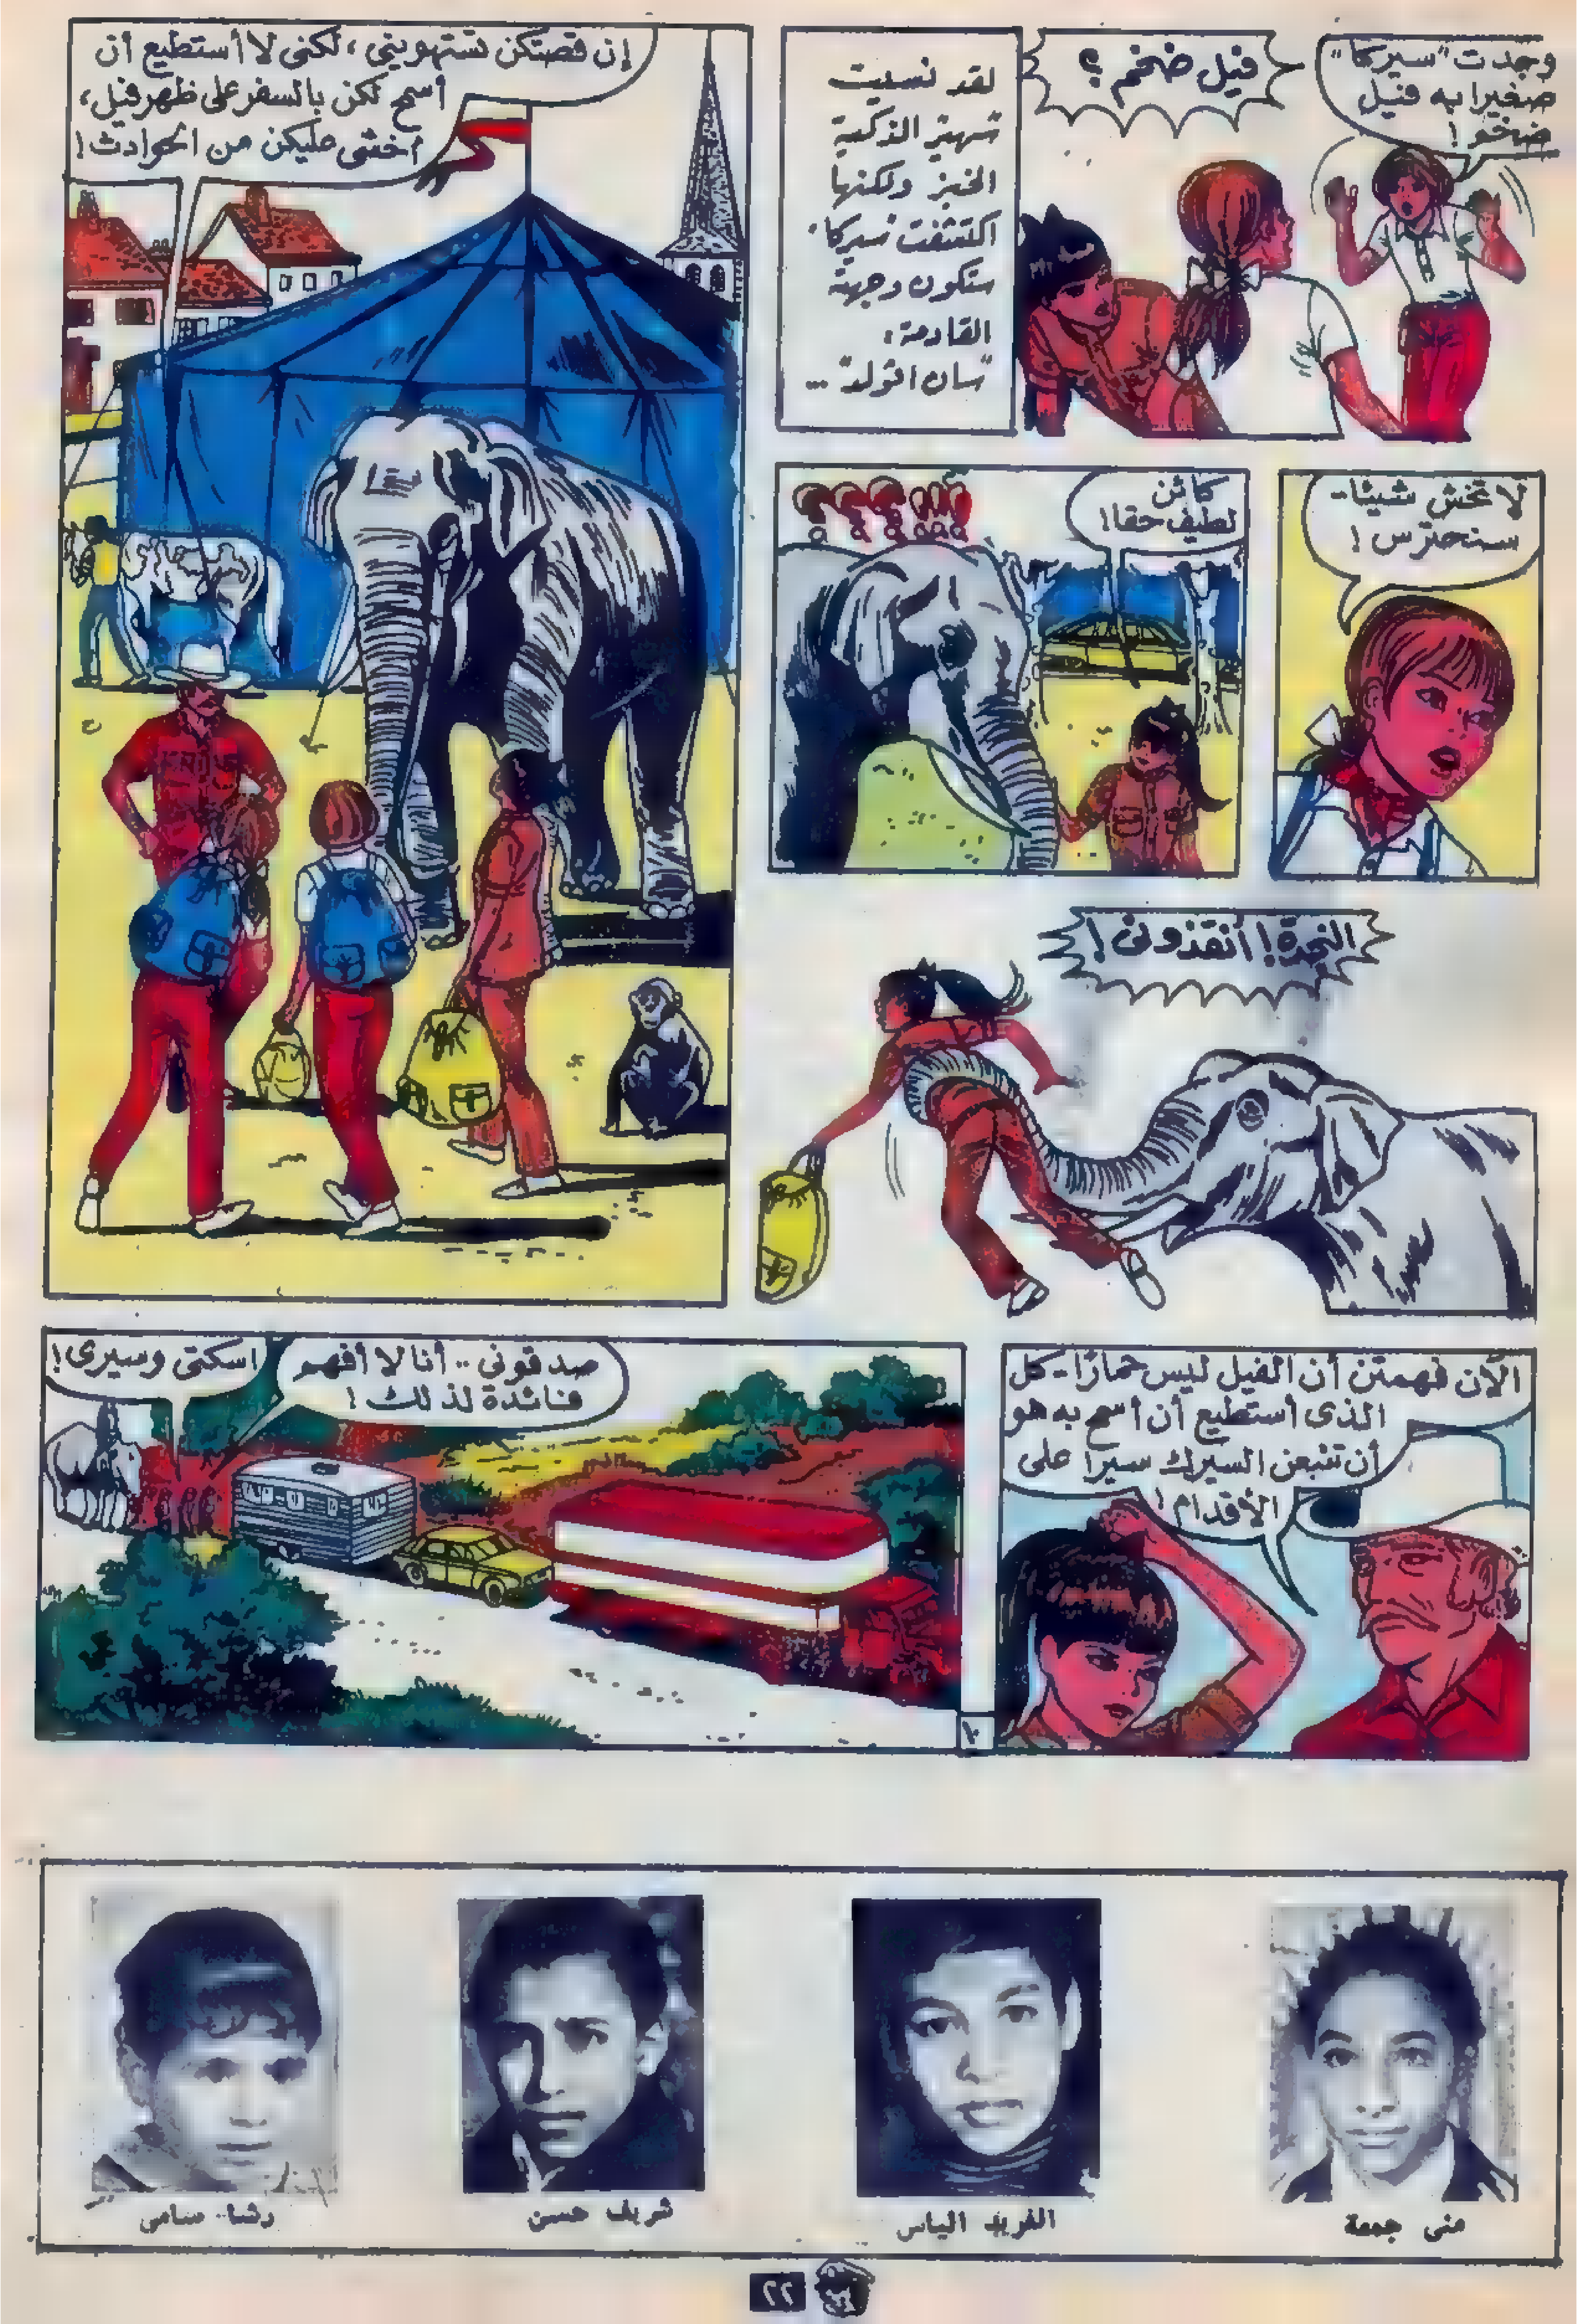 وجدت "سيركا"
صغيرا به فيل
ضخم!
فيل ضخم؟
لقد نسيت
سهير الذكية
الخبز ولكنها
اكتشفت سيركا
ستكون وجهته
القادمة:
"سان اتولد" ...
إن قصتكن تستهويني، لكنى لا أستطيع أن
أسمح لكن بالسفر على ظهر فيل،
أخشى عليكن من الحوادث!
لا تخش شيئا..
سنحترس!
كائن
لطيف حقا!
النجدة! أنقذونى!
الآن فهمتن أن الفيل ليس حمارًا.. كل
الذى أستطيع أن أسمح به هو
أن تتبعن السيرك سيرا على
الأقدام!
صدقونى .. أنا لا أفهم
فائدة لذلك!
اسكتى وسيرى!
منى جمعة
الفريد الياس
شريف حسن
رشا سامى
٢٢